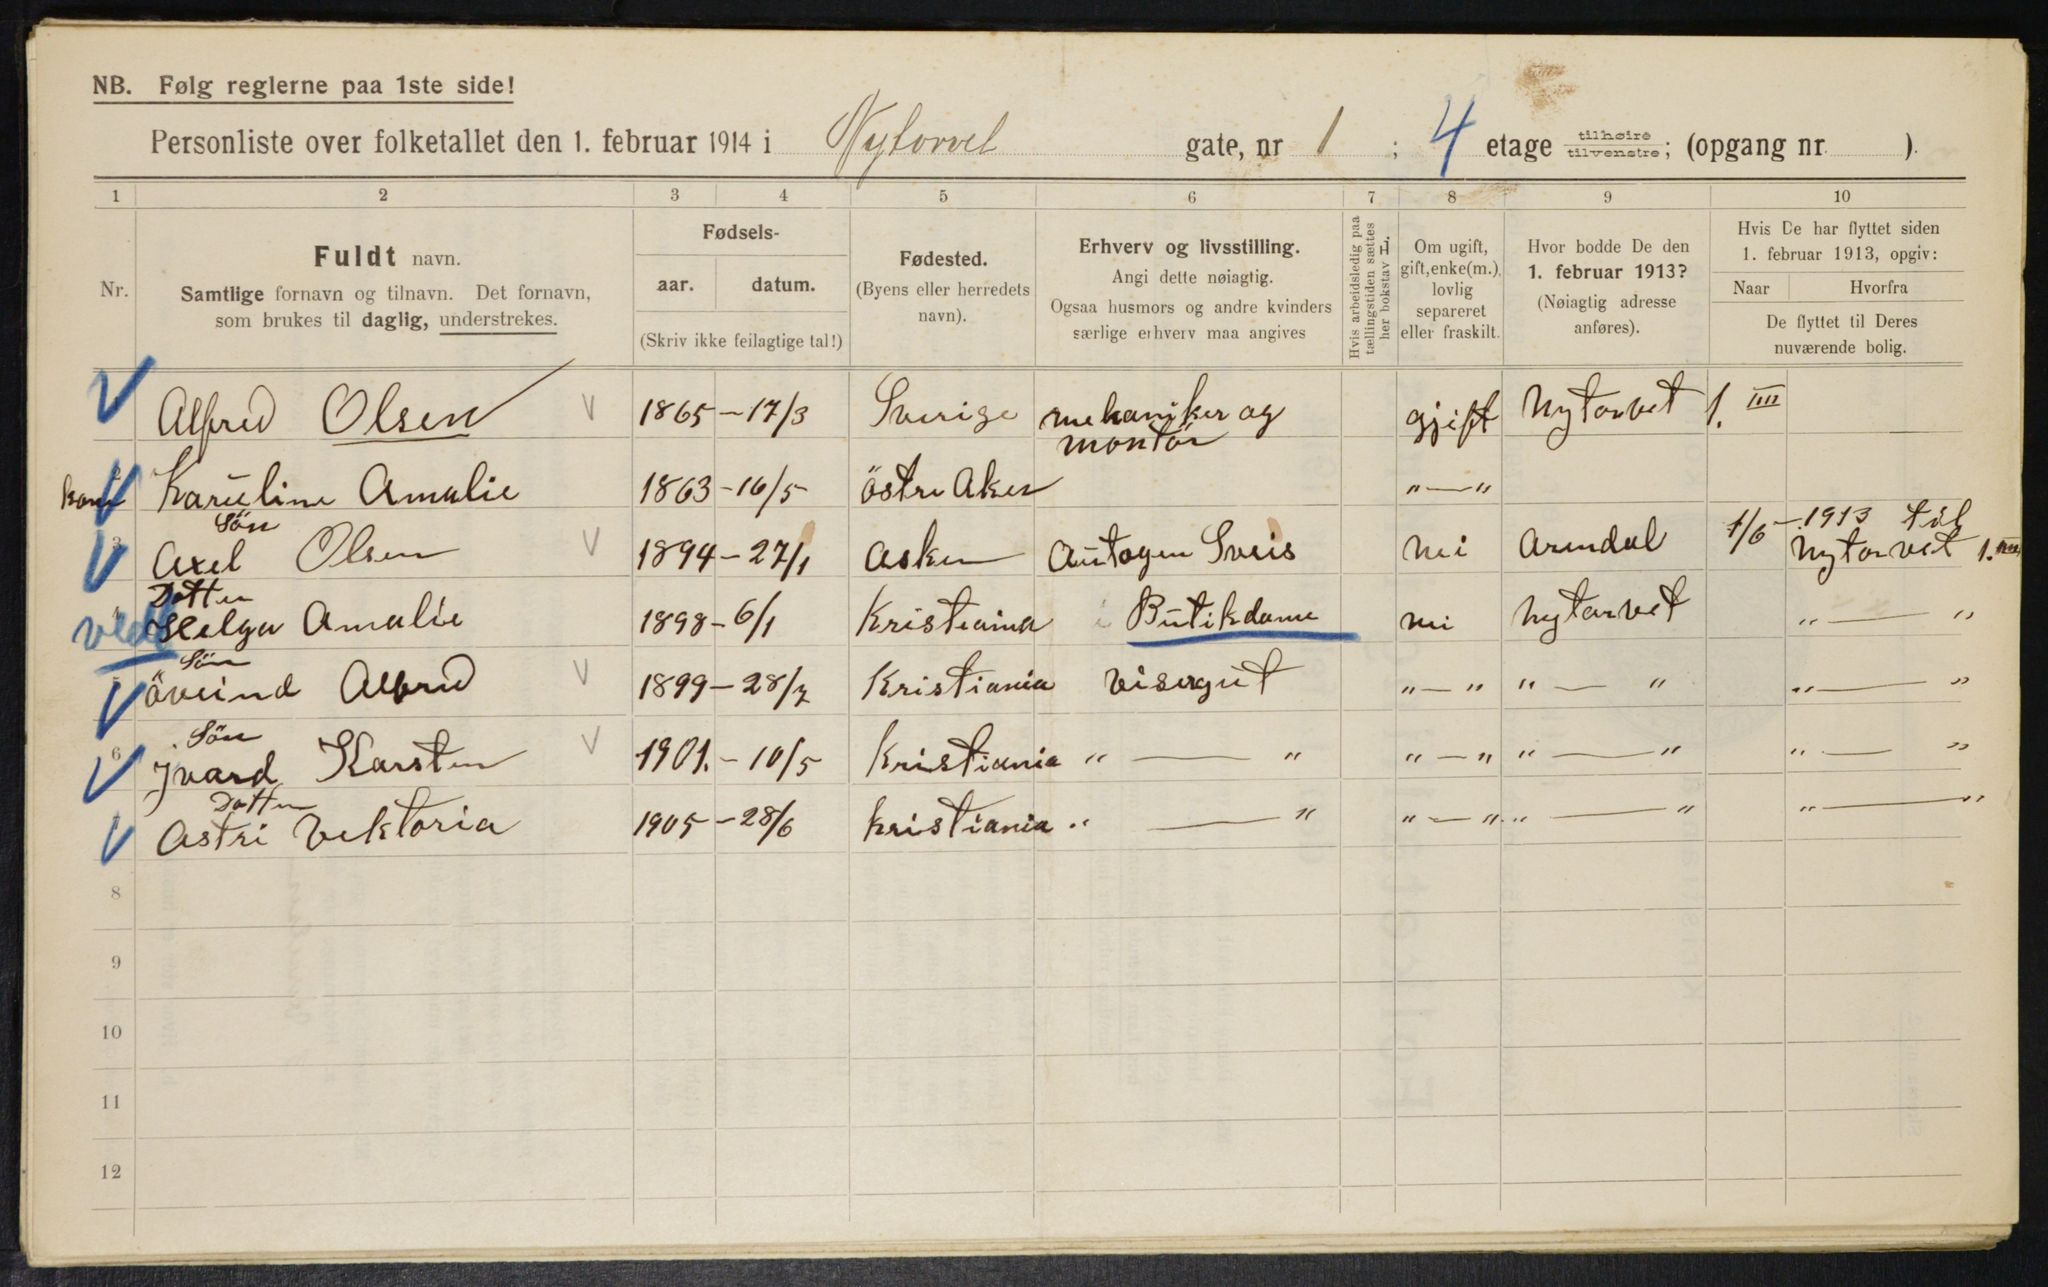 NB. Følg reglerne paa 1ste side!
Personliste over folketallet den 1. februar 1914 i Nytorvet gate, nr 1 ; 4 etage tilhøire tilvenstre; (opgang nr ).
1 2 3 4 5 6 7 8 9 10
Nr.
Fuldt navn.
Samtlige fornavn og tilnavn. Det fornavn,
som brukes til daglig, understrekes.
Fødsels-
aar. datum.
(Skriv ikke feilagtige tal!)
Fødested.
(Byens eller herredets
navn).
Erhverv og livsstilling.
Angi dette nøiagtig.
Ogsaa husmors og andre kvinders
særlige erhverv maa angives
Hvis arbeidsledig paa
tællingstiden sættes
her bokstav H.
Om ugift,
gift, enke(m.),
lovlig
separeret
eller fraskilt.
Hvor bodde De den
1. februar 1913?
(Nøiagtig adresse
anføres).
Hvis De har flyttet siden
1. februar 1913, opgiv:
Naar Hvorfra
De flyttet til Deres
nuværende bolig.
Alfred Olsen 1865 - 17/3 Sverige mekaniker og gjift Nytorvet 1. IIII
montör
kone Karuline Amalie 1863 - 16/5 östre Aker "—"
Sön 1/6 - 1913 til
3 Axel Olsen 1894 - 27/1 Asker Autogen Sveis nei Arendal Nytorvet 1. IIII
Datter
Helga Amalie 1898 - 6/1 Kristiania i Butikdame nei Nytorvet " — "
Sön
5 öveind Alfred 1899 - 28/7 Kristiania visergut " — " " — " " — "
Sön
6 Ivard Karsten 1901. - 10/5 Kristiania " — " " — " " — " " — "
Datter
Astri Viktoria 1905 - 28/6 Kristiania " — " " — " " — " " — "
8
9
10
11
12